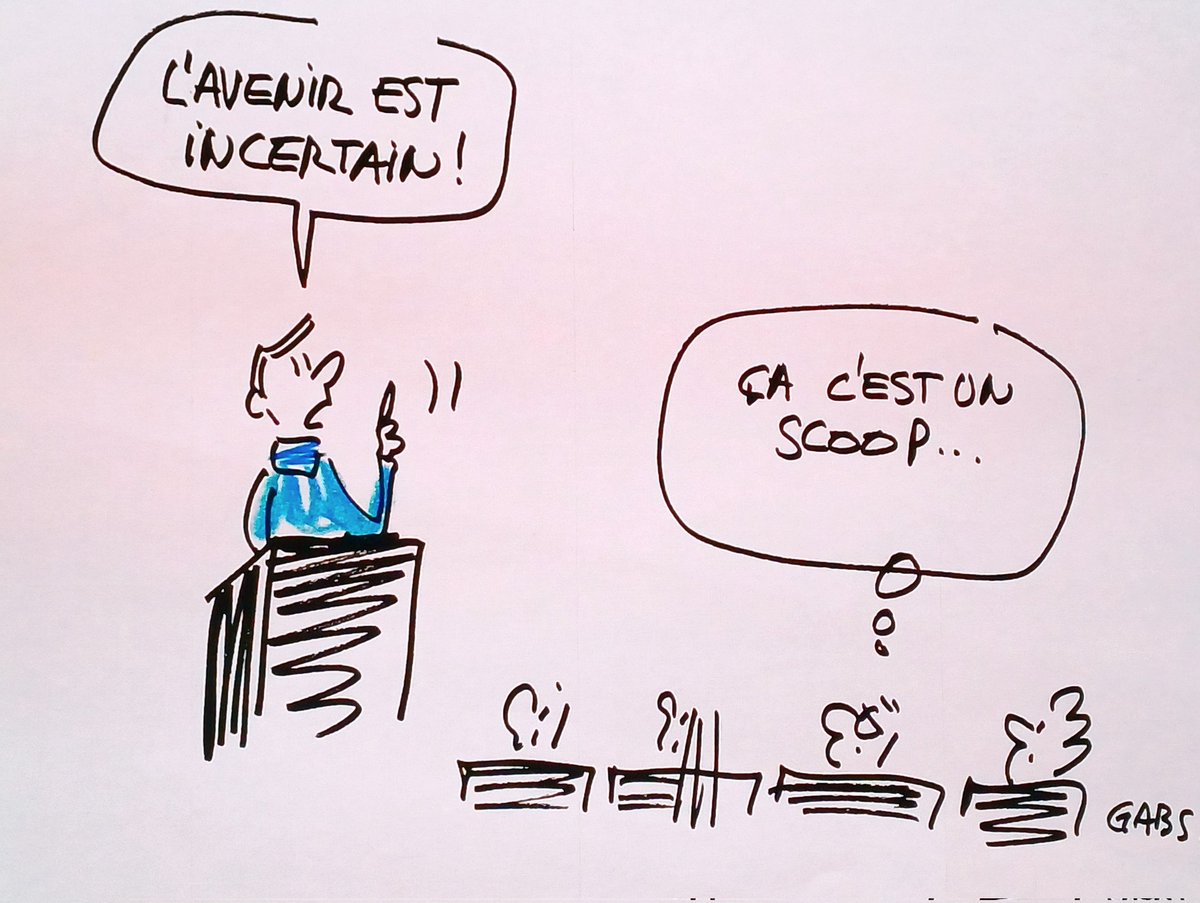 L'AVENIR EST
INCERTAIN !
ÇA C'EST UN
SCOOP...
GABS